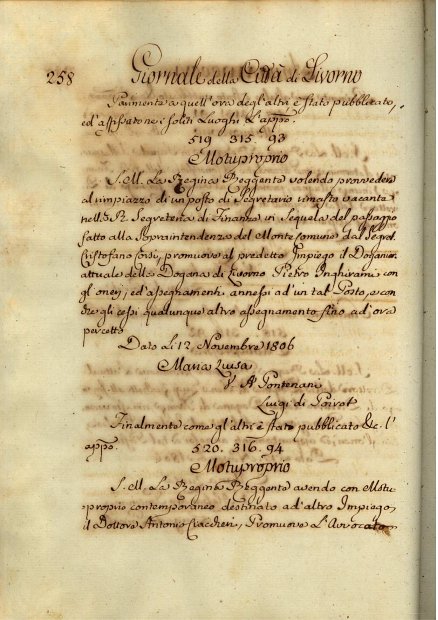 258 Giornale della Città di Livorno
Parimente a quell'ora degl'altri è stato pubblicato,
ed'affissatone i soliti Luoghi L'appo.
519 315. 93
Motuproprio
S. M. La Regina Reggente volendo provvedere
al rimpiazzo di un posto di Segretario rimasto vacante
nell. R. Segreteria di Finanze in Sequela del passaggio
fatto alla Sopraintendenza del Monte Comune dal Segret.
Cristofano Corsi, promuove al predetto Impiego il Doganiere
attuale della Dogana di Livorno Pietro Inghirami con
gl'oneri, ed'assegnamenti annessi ad'un tal Posto, e con
che gli cessi qualunque altro assegnamento fino ad'ora
percetto.
Dato Li 12. Novembre 1806
Maria Luisa
V. A. Pontenani
Luigi di Poirot
Finalmente come gl'altri è stato pubblicato &c. l'
appo.
520. 316. 94
Motuproprio
S. M. La Regina Reggente avendo con Motu-
proprio contemporaneo destinato ad'altro Impiego
il Dottore Antonio Ciaccheri, Promuove L'Avvocato